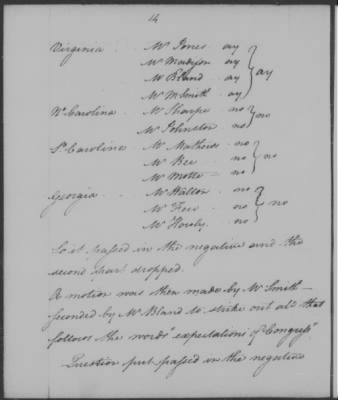 14
Virginia. Mr Jones ay
Mr Madison ay
Mr Bland ay } ay
Mr M Smith ay
No Carolina. Mr Sharpe no } no
Mr Johnston no
So Carolina Mr Mathews no
Mr Bee no } no
Mr Motte no
Georgia Mr Walton no
Mr Few no } no
Mr Howly no
So it passed in the negative and the
second part dropped.
A motion was then made by Mr Smith
seconded by Mr Bland to strike out all that
follows the words "expectations of Congress"
Question put passed in the negative